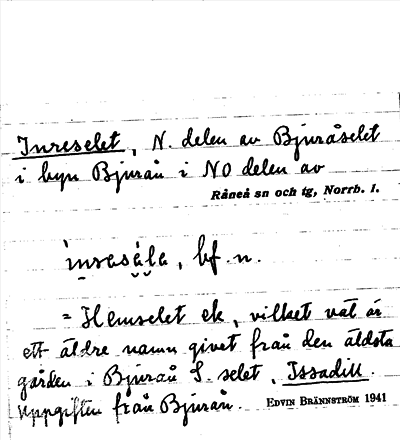 Inreselet, N. delen av Bjuråselet
i byn Bjurån i NO delen av
Råneå sn och tg, Norrb. l.
ìnseséle, bf. n.
= Hemselet ek, vilket väl är
ett äldre namn givet från den äldsta
gården i Bjurån S selet, Issadill.
Uppgiften från Bjurån. EDVIN BRÄNNSTRÖM 1941